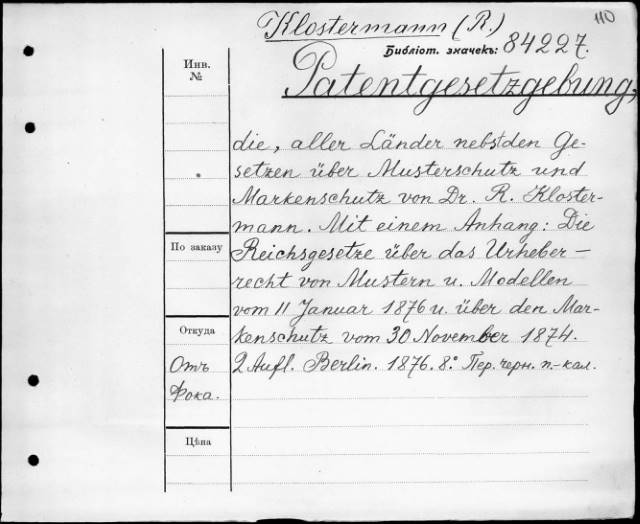 110
Klostermann (R.)
Библіот. значекъ: 84227.
Patentgesetzgebung,
Инв.
№
die, aller Länder nebst den Ge-
setzen über Musterschutz und
Markenschutz von Dr. R. Kloster-
mann. Mit einem Anhang: Die
По заказу
Reichsgesetze über das Urheber-
recht von Mustern u. Modellen
vom 11 Januar 1876 u. über den Mar-
Откуда
kenschutz vom 30 November 1874.
Отъ
2 Aufl. Berlin. 1876. 8.° Пер. черн. п.-кал.
Фока.
Цѣна